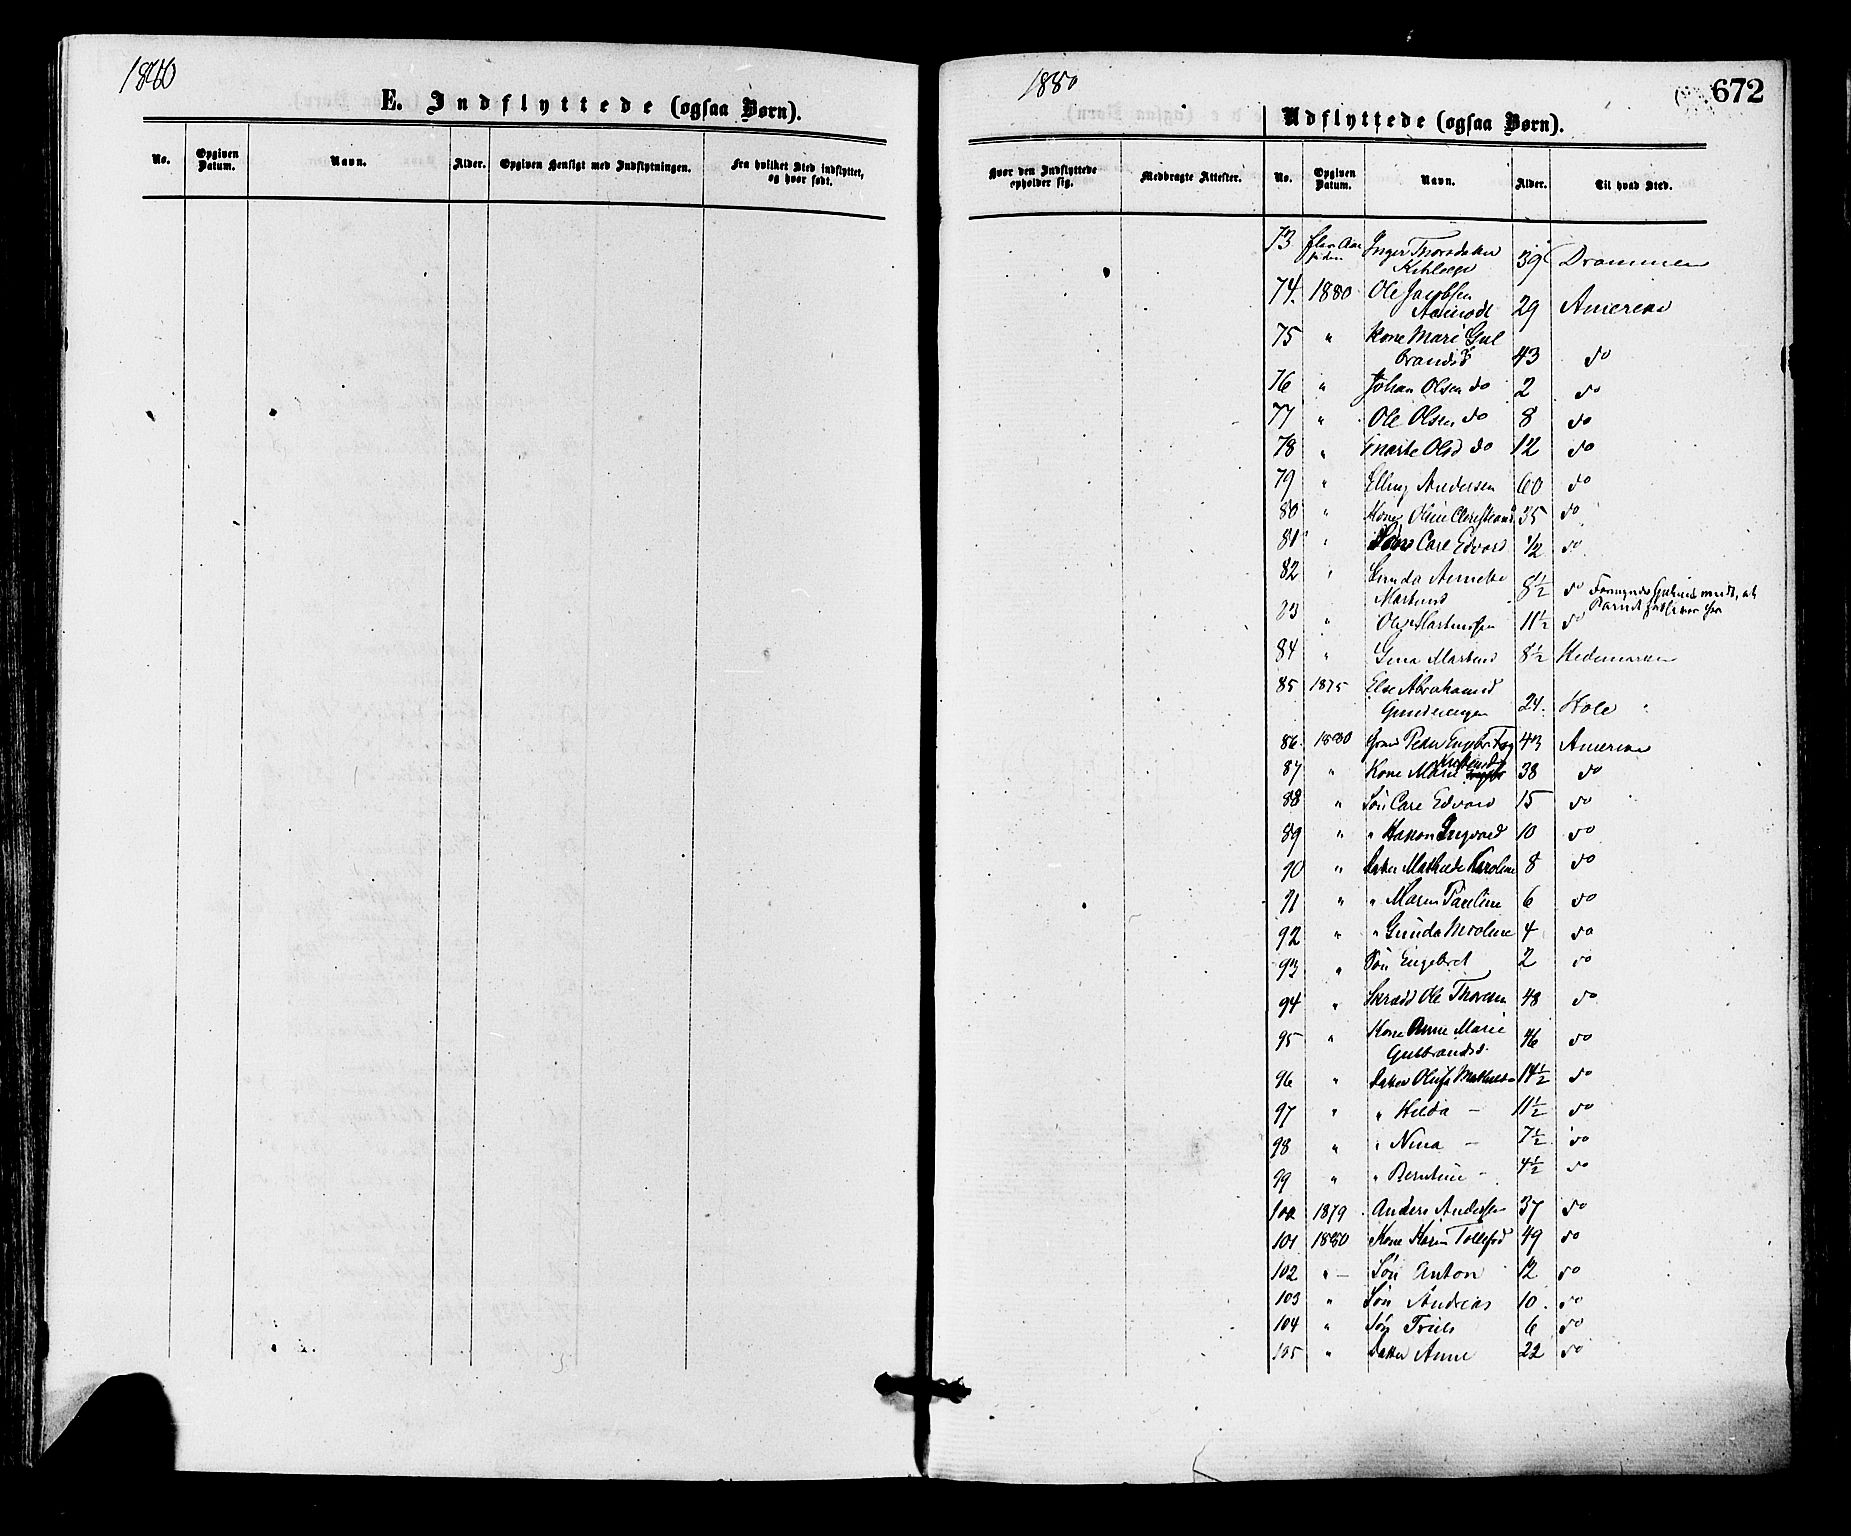 1880
E. Indflyttede (ogsaa Børn).
No.
Opgiven Datum.
Navn.
Alder.
Opgiven Hensigt med Indflytningen.
Fra hvilket Sted indflyttet, og hvor født.
1880
672
Udflyttede (ogsaa Børn).
Hvor den Indflyttede opholder sig.
Medbragte Attester.
No.
Opgiven Datum.
Navn.
Alder.
Til hvad Sted.
73 Inger Thorsdatter 39 Drammen
74. 1880 Ole Jacobsen Aamodt 29 America
75 " Kone Mari Gulbrandsd 43 do
76 " Johan Olsen do 2 do
77 " Ole Olsen do 8 do
78 " Marte Olsd do 12 do
79 " Elling Andersen 60 do
80 " Kone Christiansd 35 do
81 " Søn Carl Edvard 1/2 do
82 " Martinsd 8 1/2 do
83 " Ole Martinssen 11 1/2 do
84 " Gina Martinsd 8 1/2 Hedemarken
85 1875 Else Abrahamsd 24. Hole
86. 1880 Peder 43 America
87 " Kone Marie 38 do
88 " Søn Carl Edvard 15 do
89 " " Hakon Ingvard 10 do
90 " Datter Mathilde Karoline 8 do
91 " " Maren Pauline 6 do
92 " " Gunda Nicoline 4 do
93 " Søn Engebret 2 do
94 " Skrædd Ole Thoresen 48 do
95 " Kone Anne Marie Gulbrandsd. 46 do
96 " Datter Olufa Mathilde 14 1/2 do
97 " " Hilda — 11 1/2 do
98 " " Nina — 7 1/2 do
99 " " Berntine — 4 1/2 do
100 1879 Anders Andersen 37 do
101 1880 Kone Karen Tollefsd 49 do
102 " — Søn Anton 12 do
103 " Søn Andreas 10. do
104 " Søn Truls 6 do
105 " Datter Anne 22 do